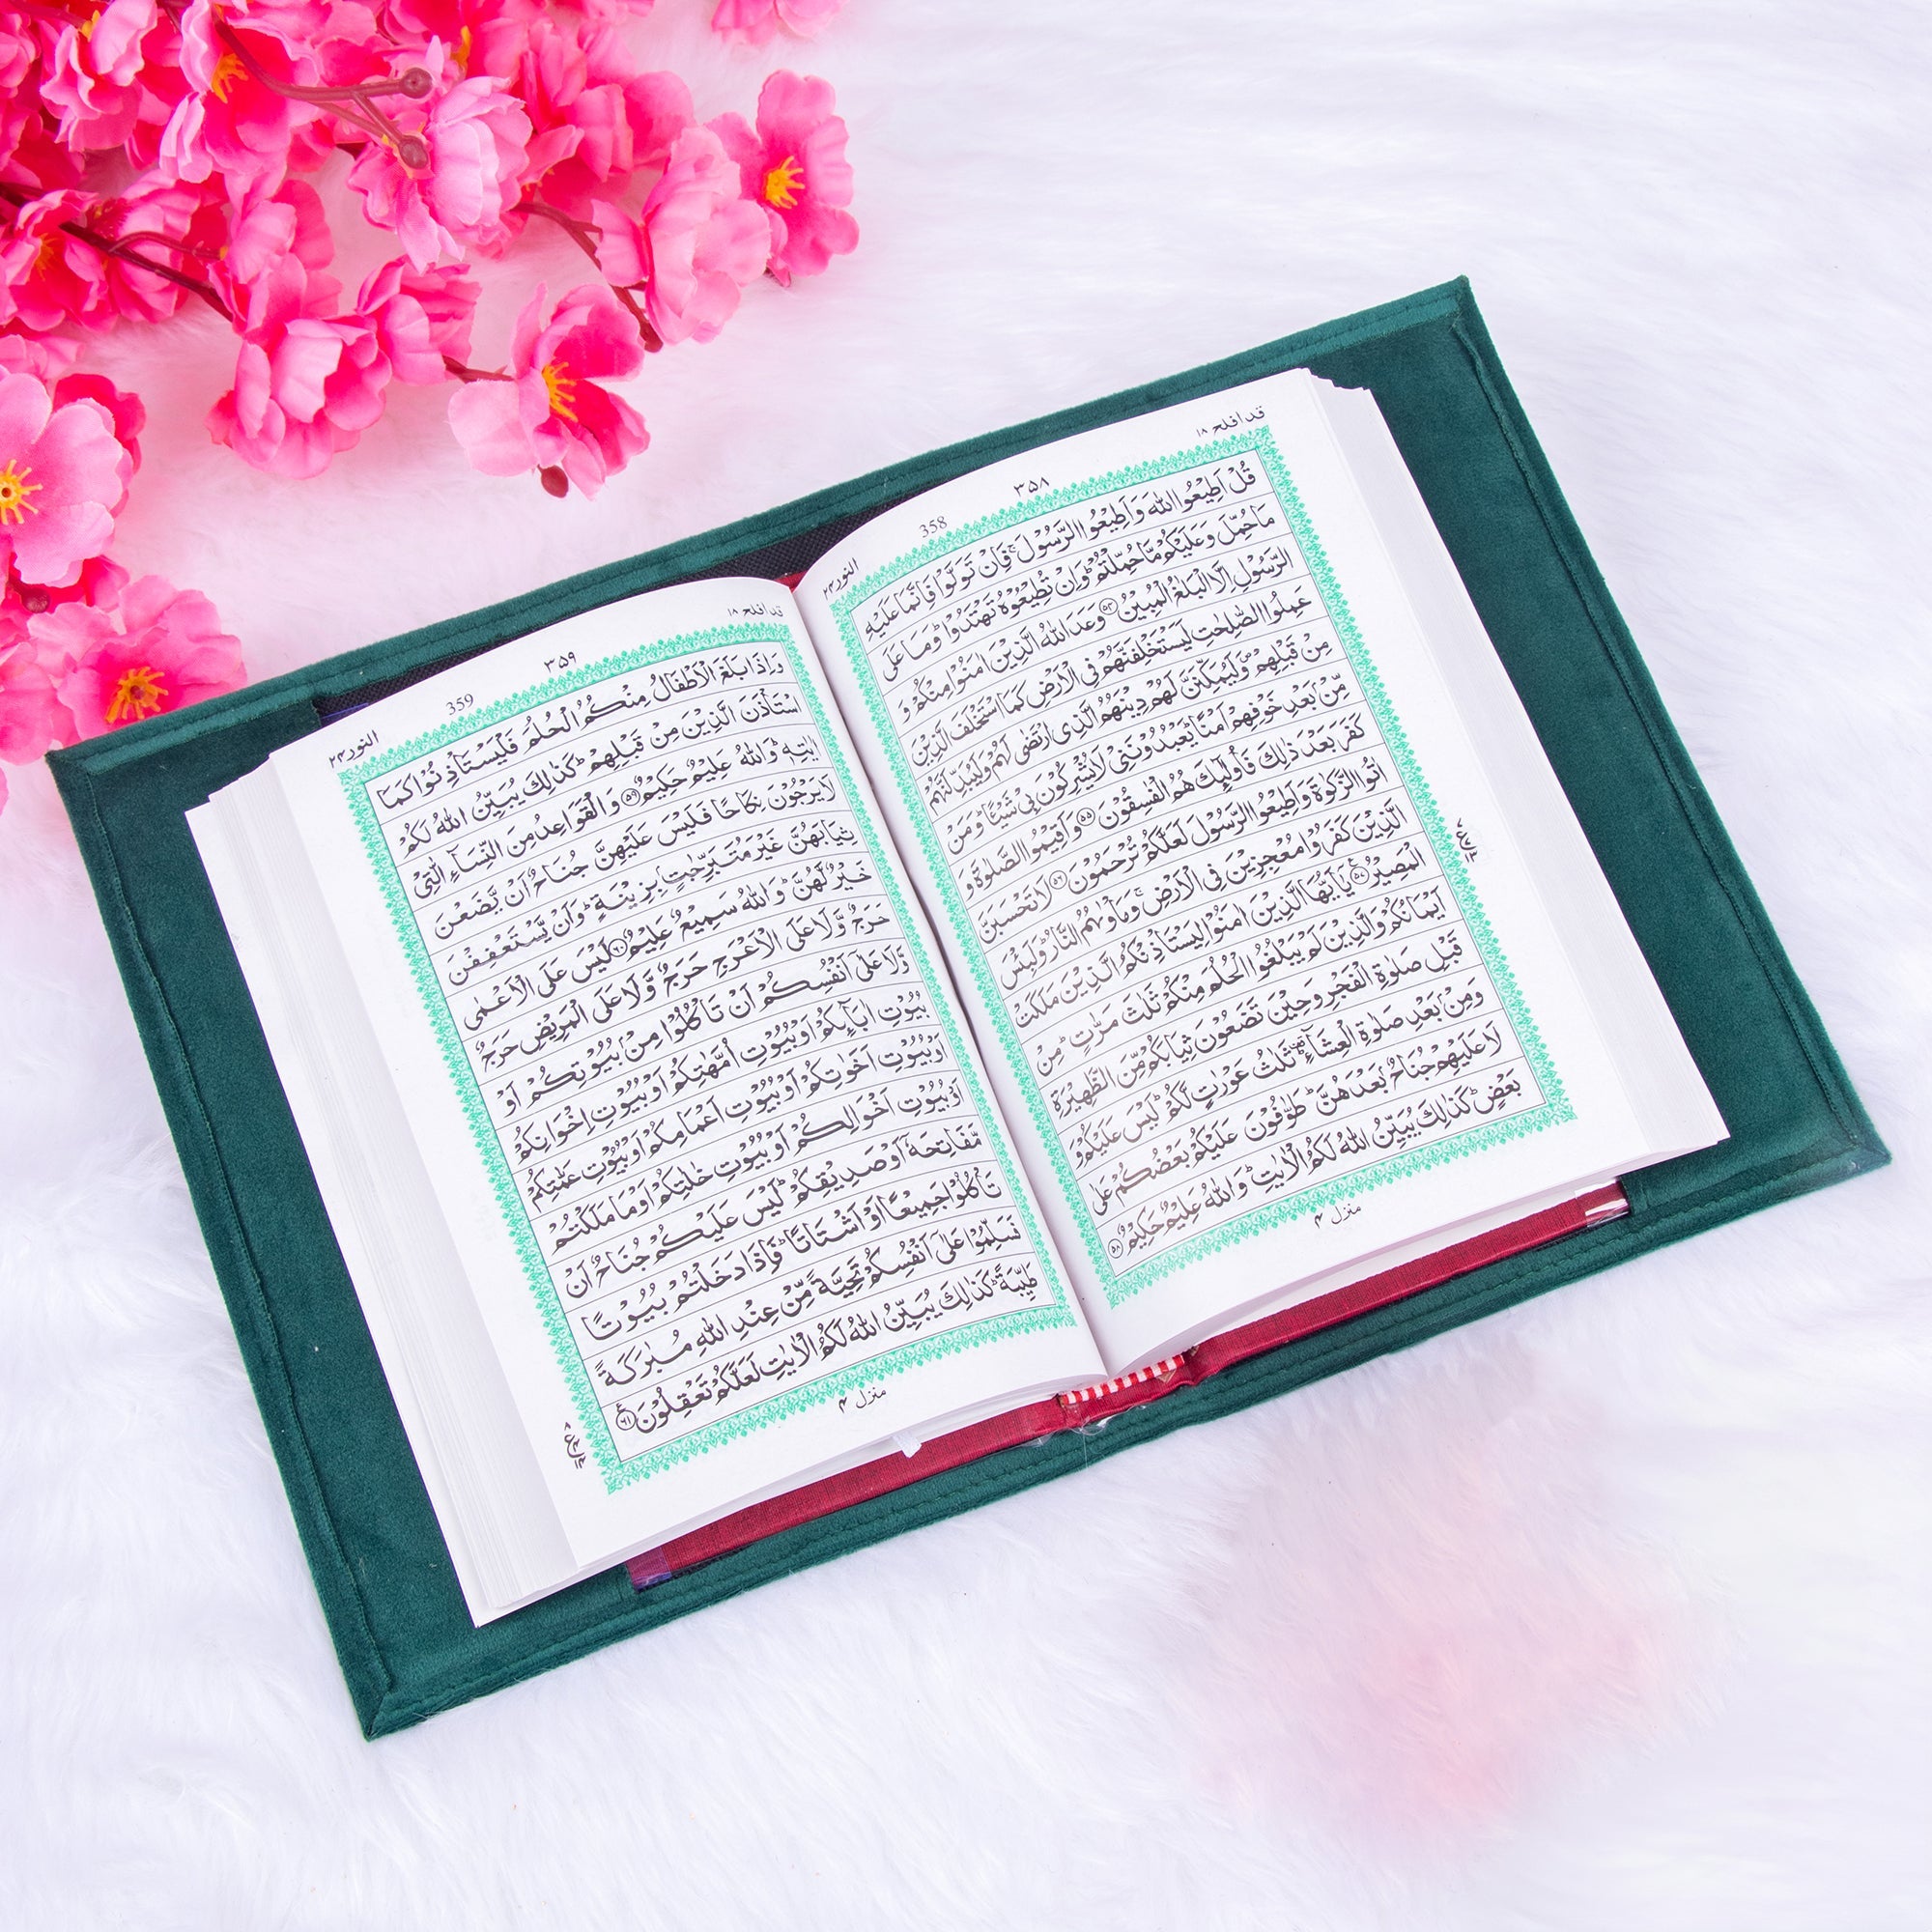 قد افلح ۱۸
۳۵۸
358
النور ۲۴
قُلْ اَطِیْعُوا اللّٰهَ وَ اَطِیْعُوا الرَّسُوْلَ ۚ فَاِنْ تَوَلَّوْا فَاِنَّمَا عَلَیْهِ
مَا حُمِّلَ وَ عَلَیْكُمْ مَّا حُمِّلْتُمْ ؕ وَ اِنْ تُطِیْعُوْهُ تَهْتَدُوْا ؕ وَ مَا عَلَی
الرَّسُوْلِ اِلَّا الْبَلٰغُ الْمُبِیْنُ ۵۴ وَعَدَ اللّٰهُ الَّذِیْنَ اٰمَنُوْا مِنْكُمْ وَ
عَمِلُوا الصّٰلِحٰتِ لَیَسْتَخْلِفَنَّهُمْ فِی الْاَرْضِ كَمَا اسْتَخْلَفَ الَّذِیْنَ
مِنْ قَبْلِهِمْ ۪ وَ لَیُمَكِّنَنَّ لَهُمْ دِیْنَهُمُ الَّذِی ارْتَضٰی لَهُمْ وَ لَیُبَدِّلَنَّهُمْ
مِّنْۢ بَعْدِ خَوْفِهِمْ اَمْنًا ؕ یَعْبُدُوْنَنِیْ لَا یُشْرِكُوْنَ بِیْ شَیْـًٔا ؕ وَ مَنْ
كَفَرَ بَعْدَ ذٰلِكَ فَاُولٰٓىِٕكَ هُمُ الْفٰسِقُوْنَ ۵۵ وَ اَقِیْمُوا الصَّلٰوةَ وَ
اٰتُوا الزَّكٰوةَ وَ اَطِیْعُوا الرَّسُوْلَ لَعَلَّكُمْ تُرْحَمُوْنَ ۵۶ لَا تَحْسَبَنَّ
الَّذِیْنَ كَفَرُوْا مُعْجِزِیْنَ فِی الْاَرْضِ ۚ وَ مَاْوٰىهُمُ النَّارُ ؕ وَ لَبِئْسَ
الْمَصِیْرُ ۵۷ یٰۤاَیُّهَا الَّذِیْنَ اٰمَنُوْا لِیَسْتَاْذِنْكُمُ الَّذِیْنَ مَلَكَتْ
اَیْمَانُكُمْ وَ الَّذِیْنَ لَمْ یَبْلُغُوا الْحُلُمَ مِنْكُمْ ثَلٰثَ مَرّٰتٍ ؕ مِنْ
قَبْلِ صَلٰوةِ الْفَجْرِ وَ حِیْنَ تَضَعُوْنَ ثِیَابَكُمْ مِّنَ الظَّهِیْرَةِ
وَ مِنْۢ بَعْدِ صَلٰوةِ الْعِشَآءِ ؕ۫ ثَلٰثُ عَوْرٰتٍ لَّكُمْ ؕ لَیْسَ عَلَیْكُمْ وَ
لَا عَلَیْهِمْ جُنَاحٌۢ بَعْدَهُنَّ ؕ طَوّٰفُوْنَ عَلَیْكُمْ بَعْضُكُمْ عَلٰی
بَعْضٍ ؕ كَذٰلِكَ یُبَیِّنُ اللّٰهُ لَكُمُ الْاٰیٰتِ ؕ وَ اللّٰهُ عَلِیْمٌ حَكِیْمٌ ۵۸
منزل ۴
قد افلح ۱۸
۳۵۹
359
النور ۲۴
وَ اِذَا بَلَغَ الْاَطْفَالُ مِنْكُمُ الْحُلُمَ فَلْیَسْتَاْذِنُوْا كَمَا
اسْتَاْذَنَ الَّذِیْنَ مِنْ قَبْلِهِمْ ؕ كَذٰلِكَ یُبَیِّنُ اللّٰهُ لَكُمْ
اٰیٰتِهٖ ؕ وَ اللّٰهُ عَلِیْمٌ حَكِیْمٌ ۵۹ وَ الْقَوَاعِدُ مِنَ النِّسَآءِ الّٰتِیْ
لَا یَرْجُوْنَ نِكَاحًا فَلَیْسَ عَلَیْهِنَّ جُنَاحٌ اَنْ یَّضَعْنَ
ثِیَابَهُنَّ غَیْرَ مُتَبَرِّجٰتٍۭ بِزِیْنَةٍ ؕ وَ اَنْ یَّسْتَعْفِفْنَ
خَیْرٌ لَّهُنَّ ؕ وَ اللّٰهُ سَمِیْعٌ عَلِیْمٌ ۶۰ لَیْسَ عَلَی الْاَعْمٰی
حَرَجٌ وَّ لَا عَلَی الْاَعْرَجِ حَرَجٌ وَّ لَا عَلَی الْمَرِیْضِ حَرَجٌ
وَّ لَا عَلٰۤی اَنْفُسِكُمْ اَنْ تَاْكُلُوْا مِنْۢ بُیُوْتِكُمْ اَوْ
بُیُوْتِ اٰبَآىِٕكُمْ اَوْ بُیُوْتِ اُمَّهٰتِكُمْ اَوْ بُیُوْتِ اِخْوَانِكُمْ
اَوْ بُیُوْتِ اَخَوٰتِكُمْ اَوْ بُیُوْتِ اَعْمَامِكُمْ اَوْ بُیُوْتِ عَمّٰتِكُمْ
اَوْ بُیُوْتِ اَخْوَالِكُمْ اَوْ بُیُوْتِ خٰلٰتِكُمْ اَوْ مَا مَلَكْتُمْ
مَّفَاتِحَهٗۤ اَوْ صَدِیْقِكُمْ ؕ لَیْسَ عَلَیْكُمْ جُنَاحٌ اَنْ
تَاْكُلُوْا جَمِیْعًا اَوْ اَشْتَاتًا ؕ فَاِذَا دَخَلْتُمْ بُیُوْتًا
فَسَلِّمُوْا عَلٰۤی اَنْفُسِكُمْ تَحِیَّةً مِّنْ عِنْدِ اللّٰهِ مُبٰرَكَةً
طَیِّبَةً ؕ كَذٰلِكَ یُبَیِّنُ اللّٰهُ لَكُمُ الْاٰیٰتِ لَعَلَّكُمْ تَعْقِلُوْنَ ۶۱
منزل ۴